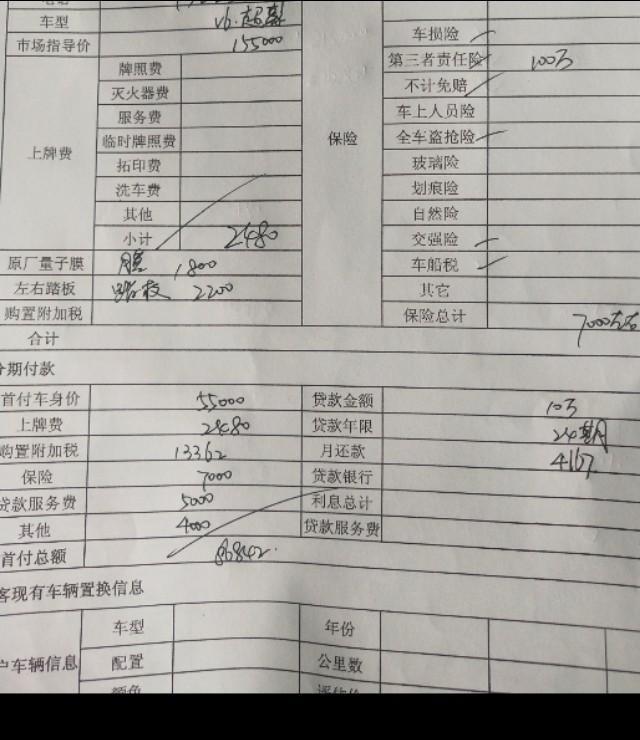 车型 v6.超豪
市场指导价 155000
上牌费
牌照费
灭火器费
服务费
临时牌照费
拓印费
洗车费
其他
小计 2480
原厂量子膜 膜 1800
左右踏板 踏板 2200
购置附加税
合计
保险
车损险
第三者责任险 100万
不计免赔
车上人员险
全车盗抢险
玻璃险
划痕险
自然险
交强险
车船税
其它
保险总计 7000左右
分期付款
首付车身价 55000
上牌费 2480
购置附加税 13362
保险 7000
贷款服务费 5000
其他 4000
首付总额 86842.
贷款金额 10万
贷款年限 24期
月还款 4167
贷款银行
利息总计
贷款服务费
客现有车辆置换信息
户车辆信息
车型 年份
配置 公里数
颜色